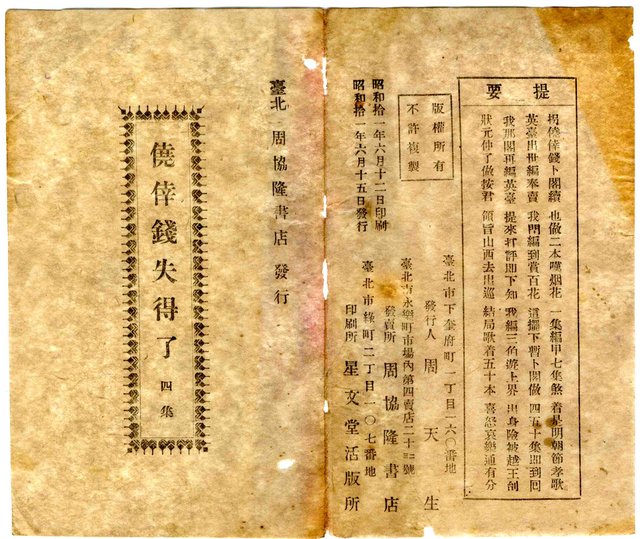 提要
僥倖錢卜閣續 也做二本嘆烟花 一集編甲七集煞 着是明朝節孝歌
英臺出世編奉賣 我閃編到賞百花 這擺下暫卜閣做 四五十集即到囘
我那閣再編英臺 提來打評即下知 我編三伯遊上界 出身險被越王刣
狀元仲了做按君 領旨山西去出巡 結局歌着五十本 喜怒哀樂通有分
版權所有
不許複製
昭和拾一年六月十二日印刷
昭和拾一年六月十五日發行
臺北市下奎府町一丁目一六〇番地
發行人 周天生
臺北市永樂町市場內第四賣店二十三號
發賣所 周協隆書店
臺北市綠町二丁目一〇七番地
印刷所 星文堂活版所
臺北 周協隆書店 發行
僥倖錢失得了 四集